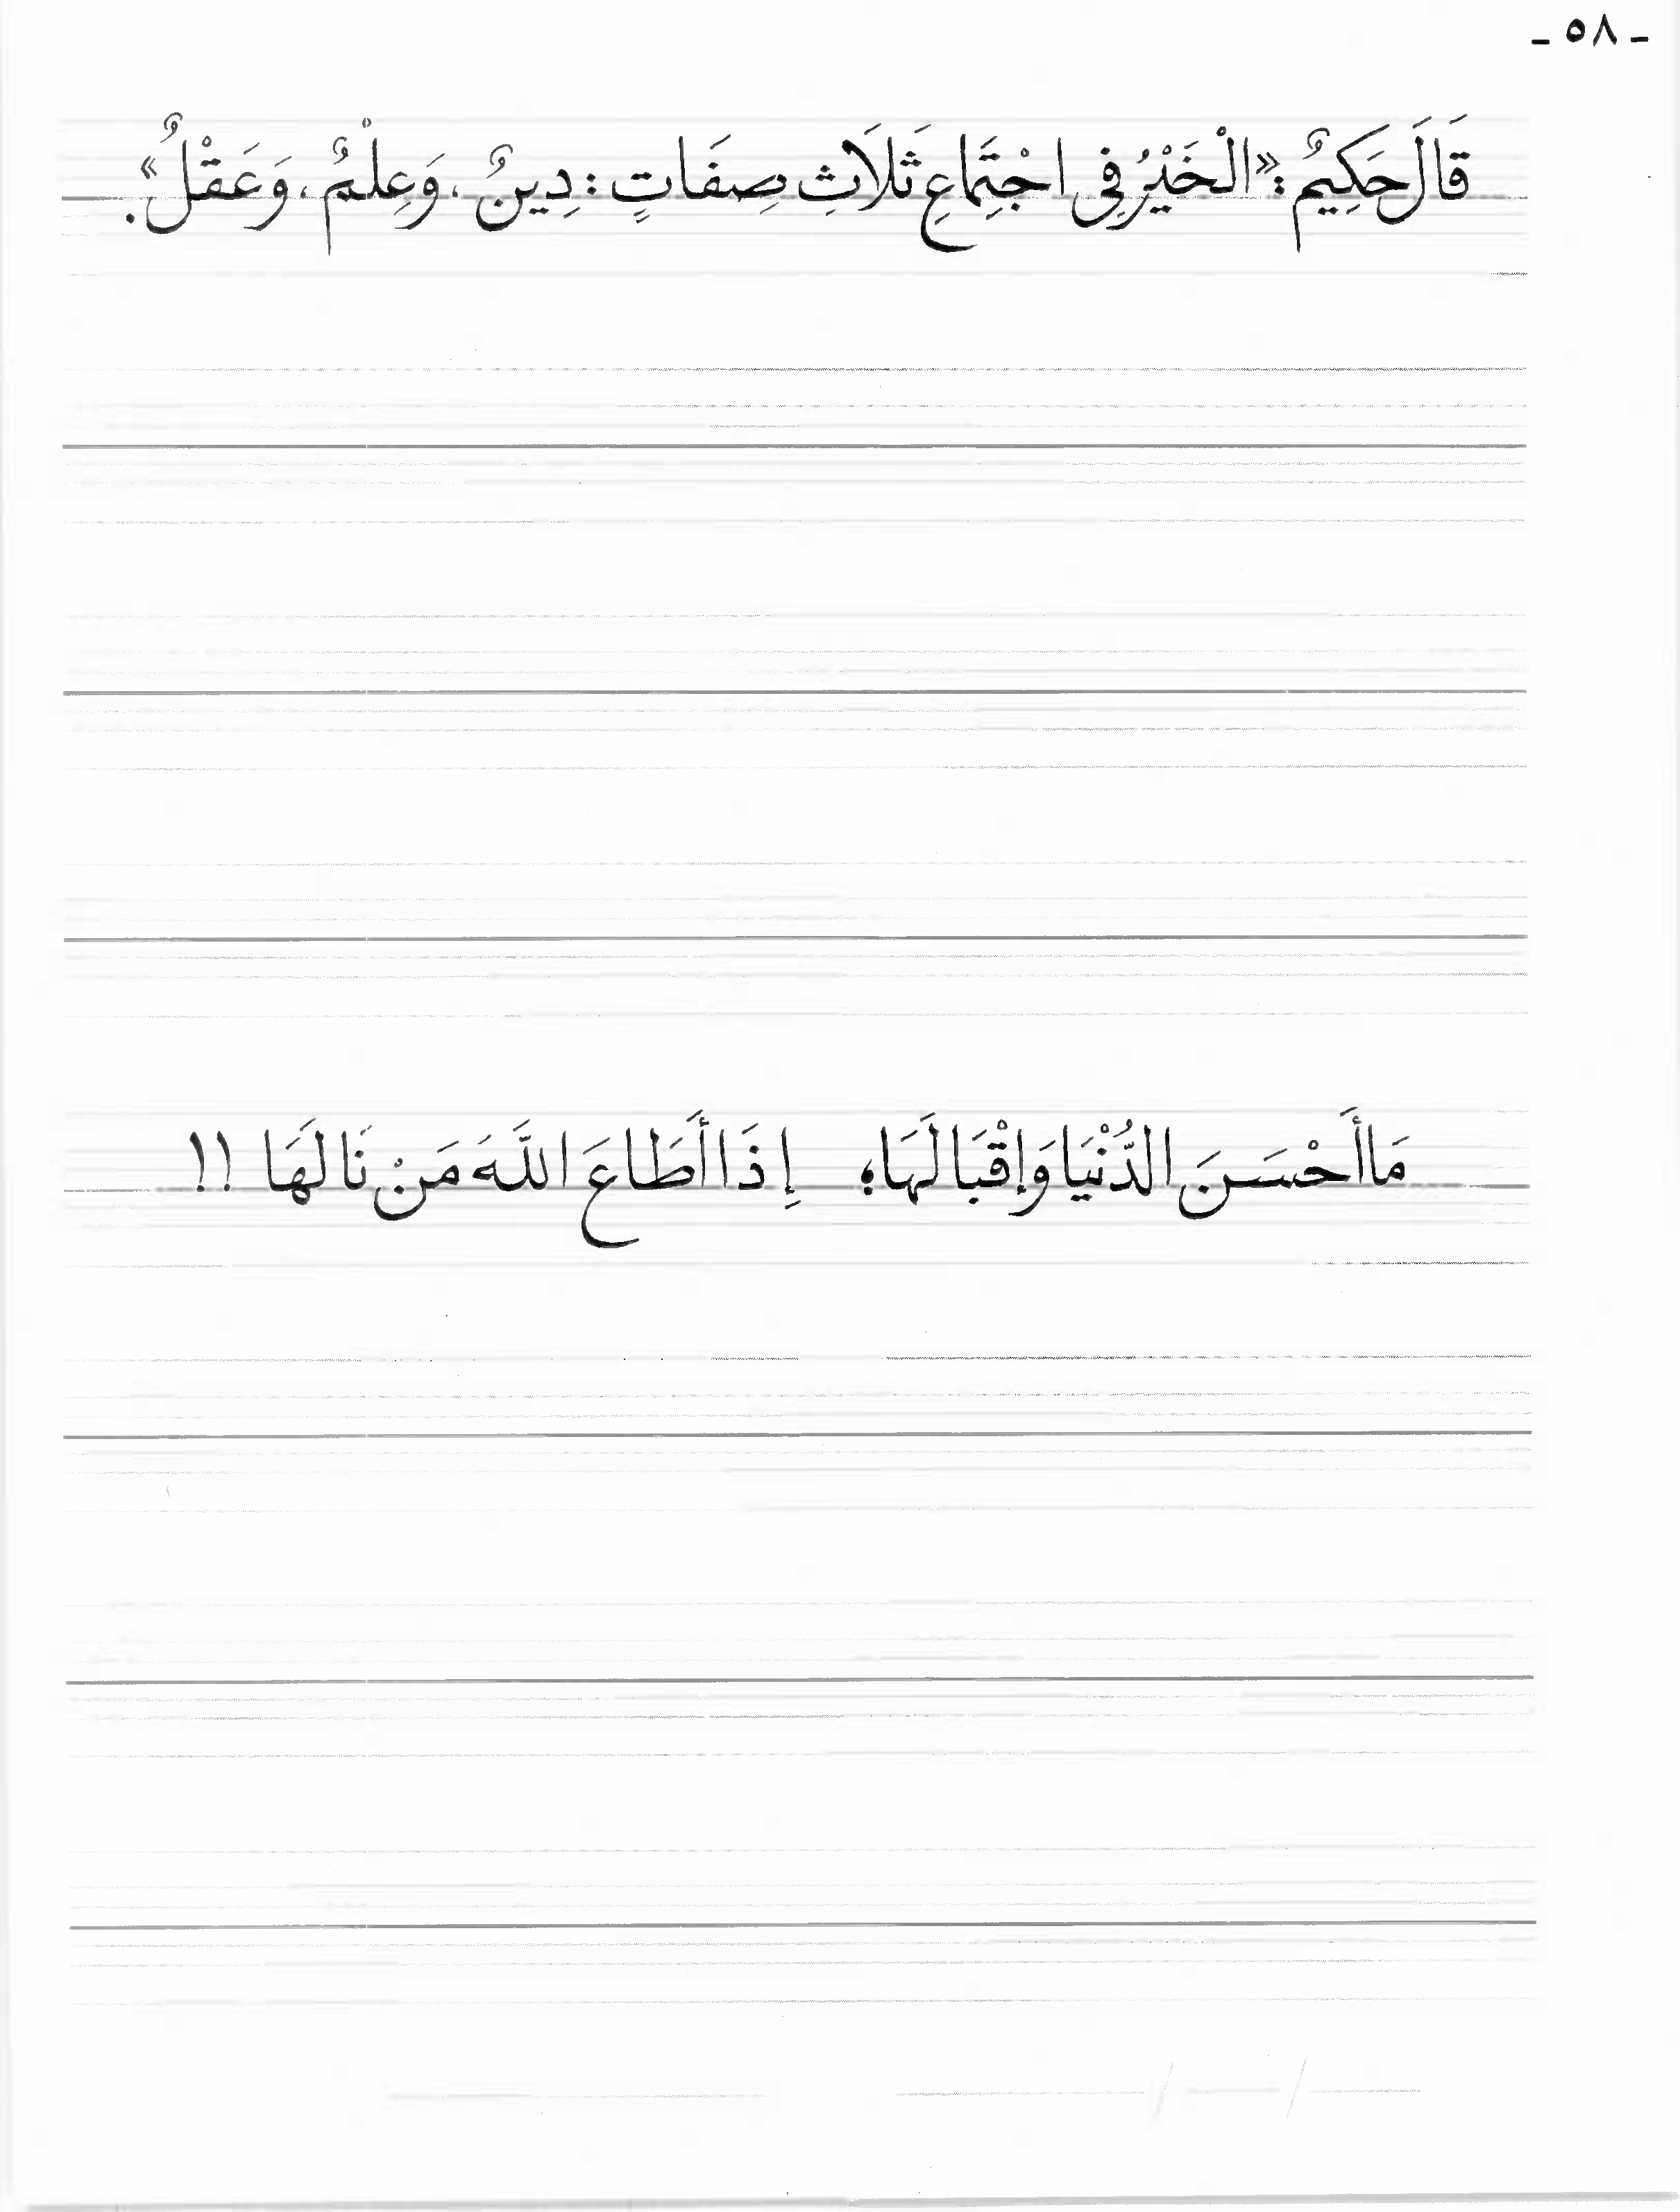 - ٥٨ -
قَالَ حَكِيمٌ : «الْخَيْرُ فِي اجْتِمَاعِ ثَلَاثِ صِفَاتٍ : دِينٌ ، وَعِلْمٌ ، وَعَقْلٌ» .
مَا أَحْسَنَ الدُّنْيَا وَإِقْبَالَهَا؛ إِذَا أَطَاعَ اللَّهَ مَنْ نَالَهَا !!